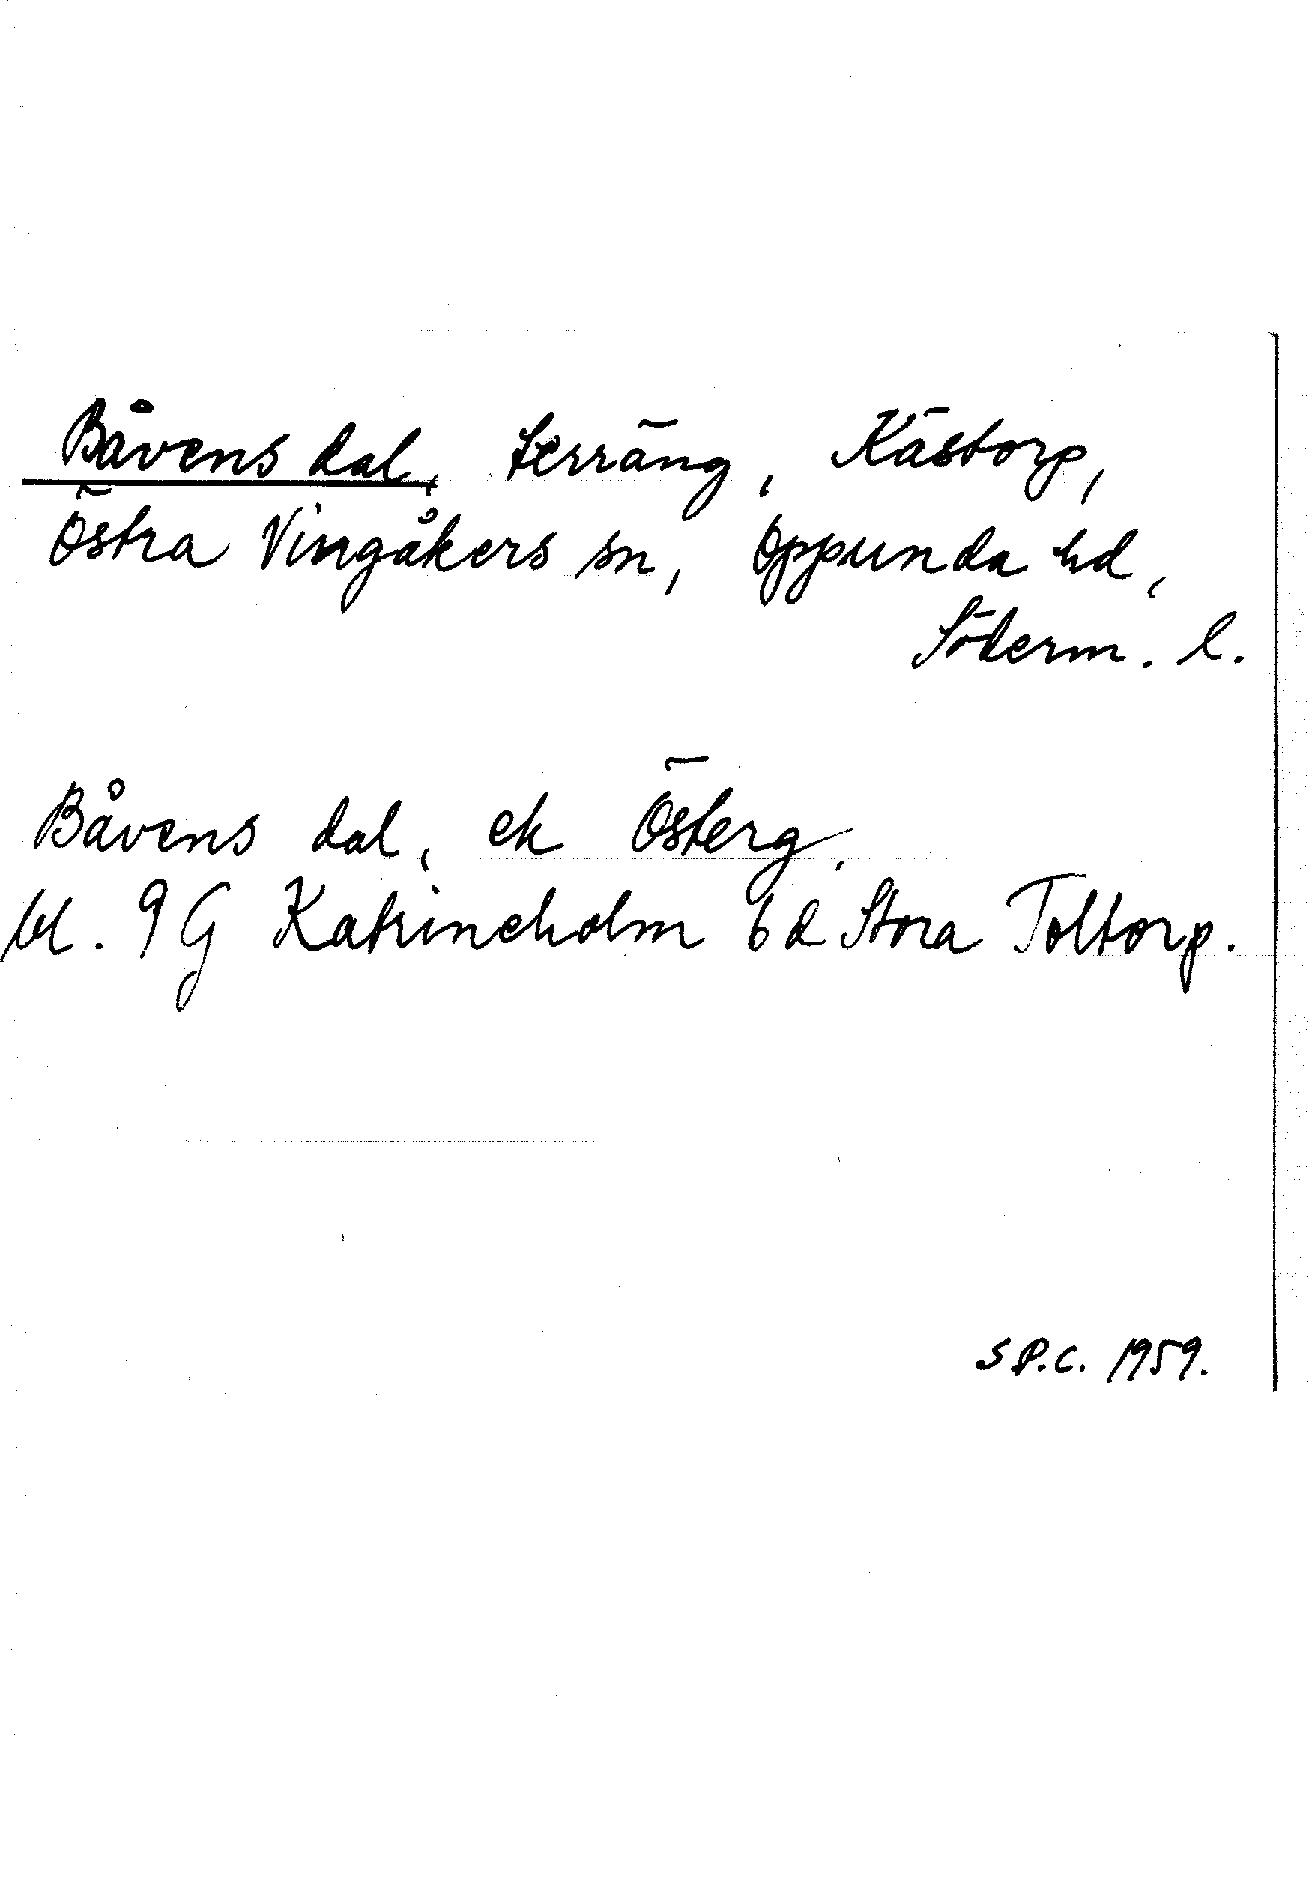 Båvens dal, terräng, Kästorp,
Östra Vingåkers sn, Oppunda hd,
Söderm. l.
Båvens dal, ek Österg.
bl. 9G Katrineholm 6d Stora Toltorp.
S P.C. 1959.